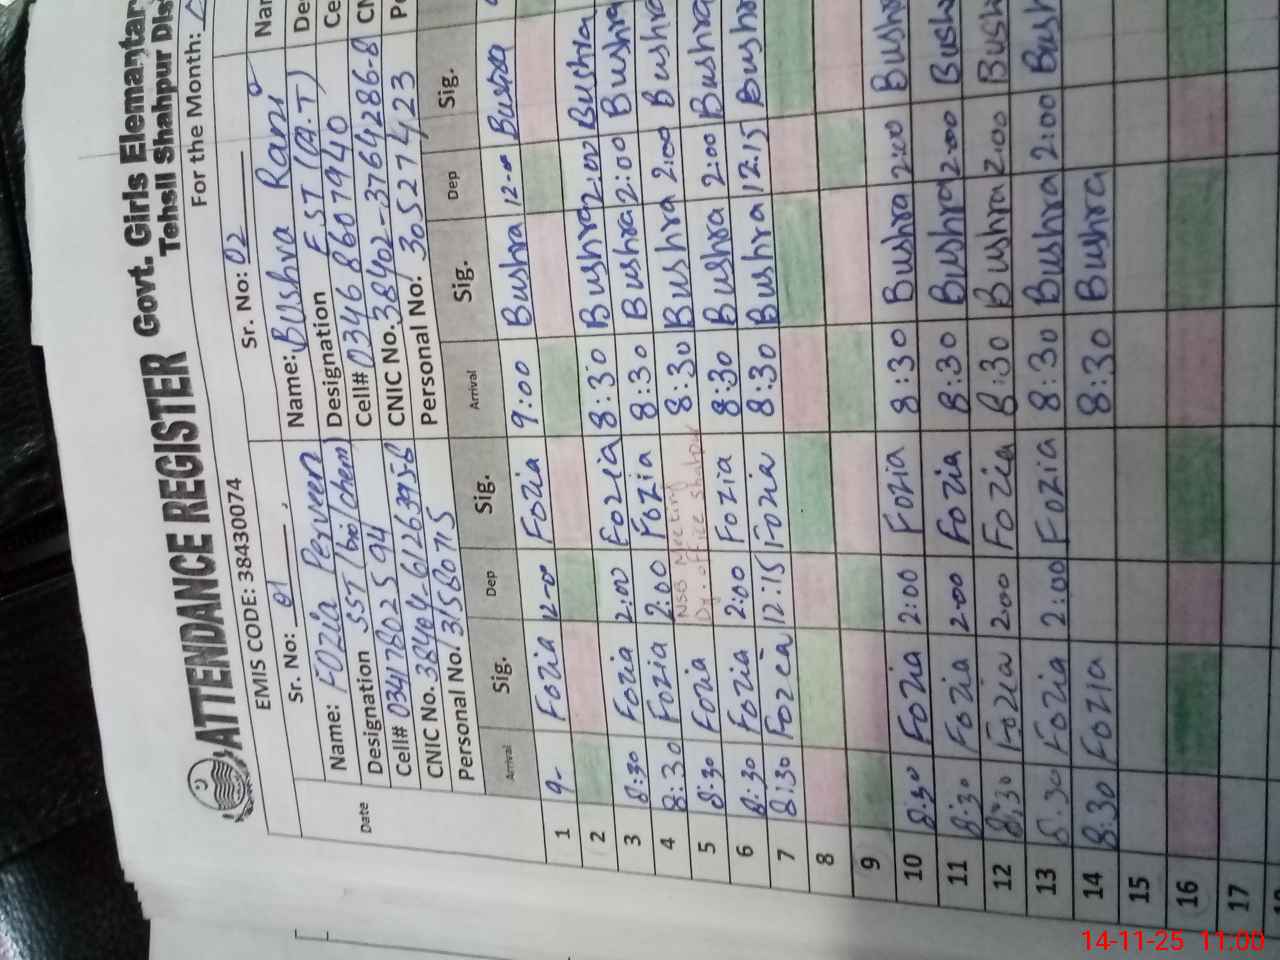 ATTENDANCE REGISTER Govt. Girls Elemantar
Tehsil Shahpur Dis
EMIS CODE: 38430074
For the Month:
Sr. No: 01
Sr. No: 02
Name: Fozia Perveen
Name: Bushra Rani
Nar
Designation SST (bio/chem)
Designation EST (A.T)
De
Cell# 03417802594
Cell# 0346 8607940
Ce
CNIC No. 38404-6126395-6
CNIC No. 38402-3764286-8
CN
Personal No. 31580715
Personal No. 30527423
Pe
Date Arrival Sig. Dep Sig. Arrival Sig. Dep Sig.
1 9- Fozia 12-00 Fozia 9:00 Bushra 12-00 Bushra
2
3 8:30 Fozia 2:00 Fozia 8:30 Bushra 2:00 Bushra
4 8:30 Fozia 2:00 Fozia 8:30 Bushra 2:00 Bushra
5 8:30 Fozia NSB Meeting Dy. office Shahpur 8:30 Bushra 2:00 Bushra
6 8:30 Fozia 2:00 Fozia 8:30 Bushra 2:00 Bushra
7 8:30 Fozia 12:15 Fozia 8:30 Bushra 12:15 Bushra
8
9
10 8:30 Fozia 2:00 Fozia 8:30 Bushra 2:00 Bushr
11 8:30 Fozia 2:00 Fozia 8:30 Bushra 2:00 Bush
12 8:30 Fozia 2:00 Fozia 8:30 Bushra 2:00 Bush
13 8:30 Fozia 2:00 Fozia 8:30 Bushra 2:00 Bush
14 8:30 Fozia 8:30 Bushra
15
16
17
14-11-25 11:00